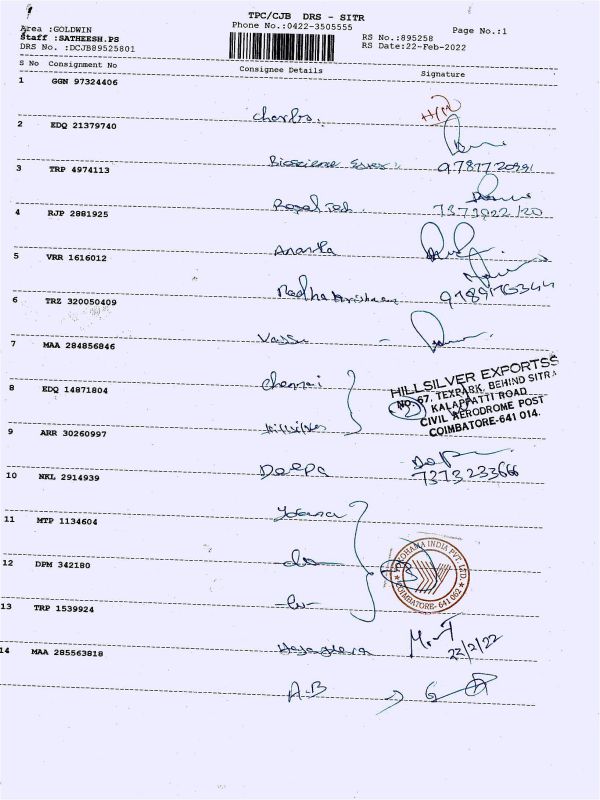 TPC/CJB DRS - SITR
Area :GOLDWIN
Phone No.:0422-3505555
Page No.:1
Staff :SATHEESH.PS
RS No.:895258
DRS No. :DCJB89525801
RS Date:22-Feb-2022
S No Consignment No Consignee Details Signature
1 GGN 97324406
Charles.
2 EDQ 21379740
9787720991
3 TRP 4974113
4 RJP 2881925
Ananta
5 VRR 1616012
Radhakrishnan
6 TRZ 320050409
Vassu
7 MAA 284856846
Chennai
HILLSILVER EXPORTSS
NO. 67, TEXPARK, BEHIND SITRA
8 EDQ 14871804
KALAPPATTI ROAD
CIVIL AERODROME POST
COIMBATORE-641 014.
Hillsilver
9 ARR 30260997
Deepa
7373233666
10 NKL 2914939
11 MTP 1134604
INDIA PVT. LTD.
12 DPM 342180
COIMBATORE- 641 062
13 TRP 1539924
M.T
22/2/22
14 MAA 285563818
A-B